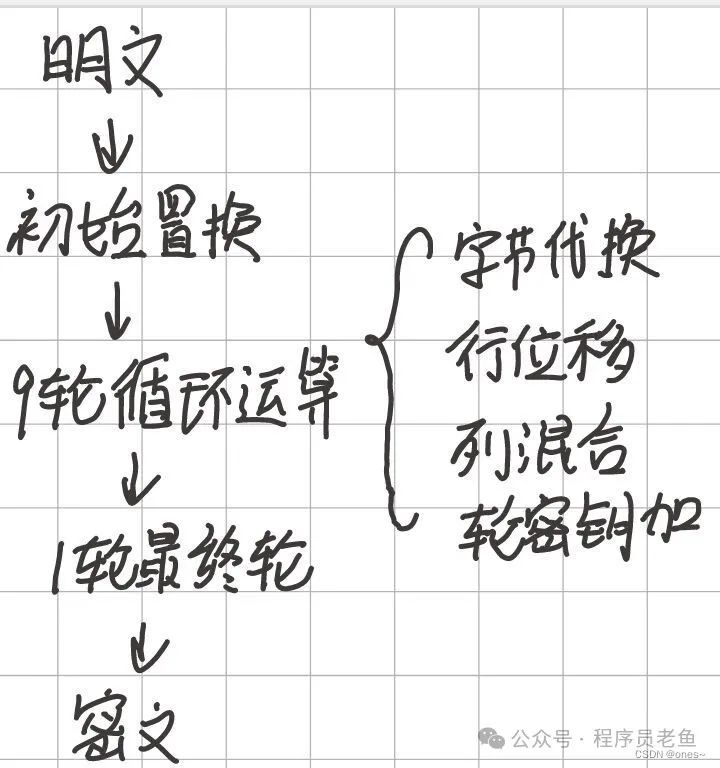 明文
↓
初始置换
↓
9轮循环运算
字节代换
行位移
列混合
轮密钥加
↓
1轮最终轮
↓
密文
公众号·程序员老鱼
CSDN @ones~